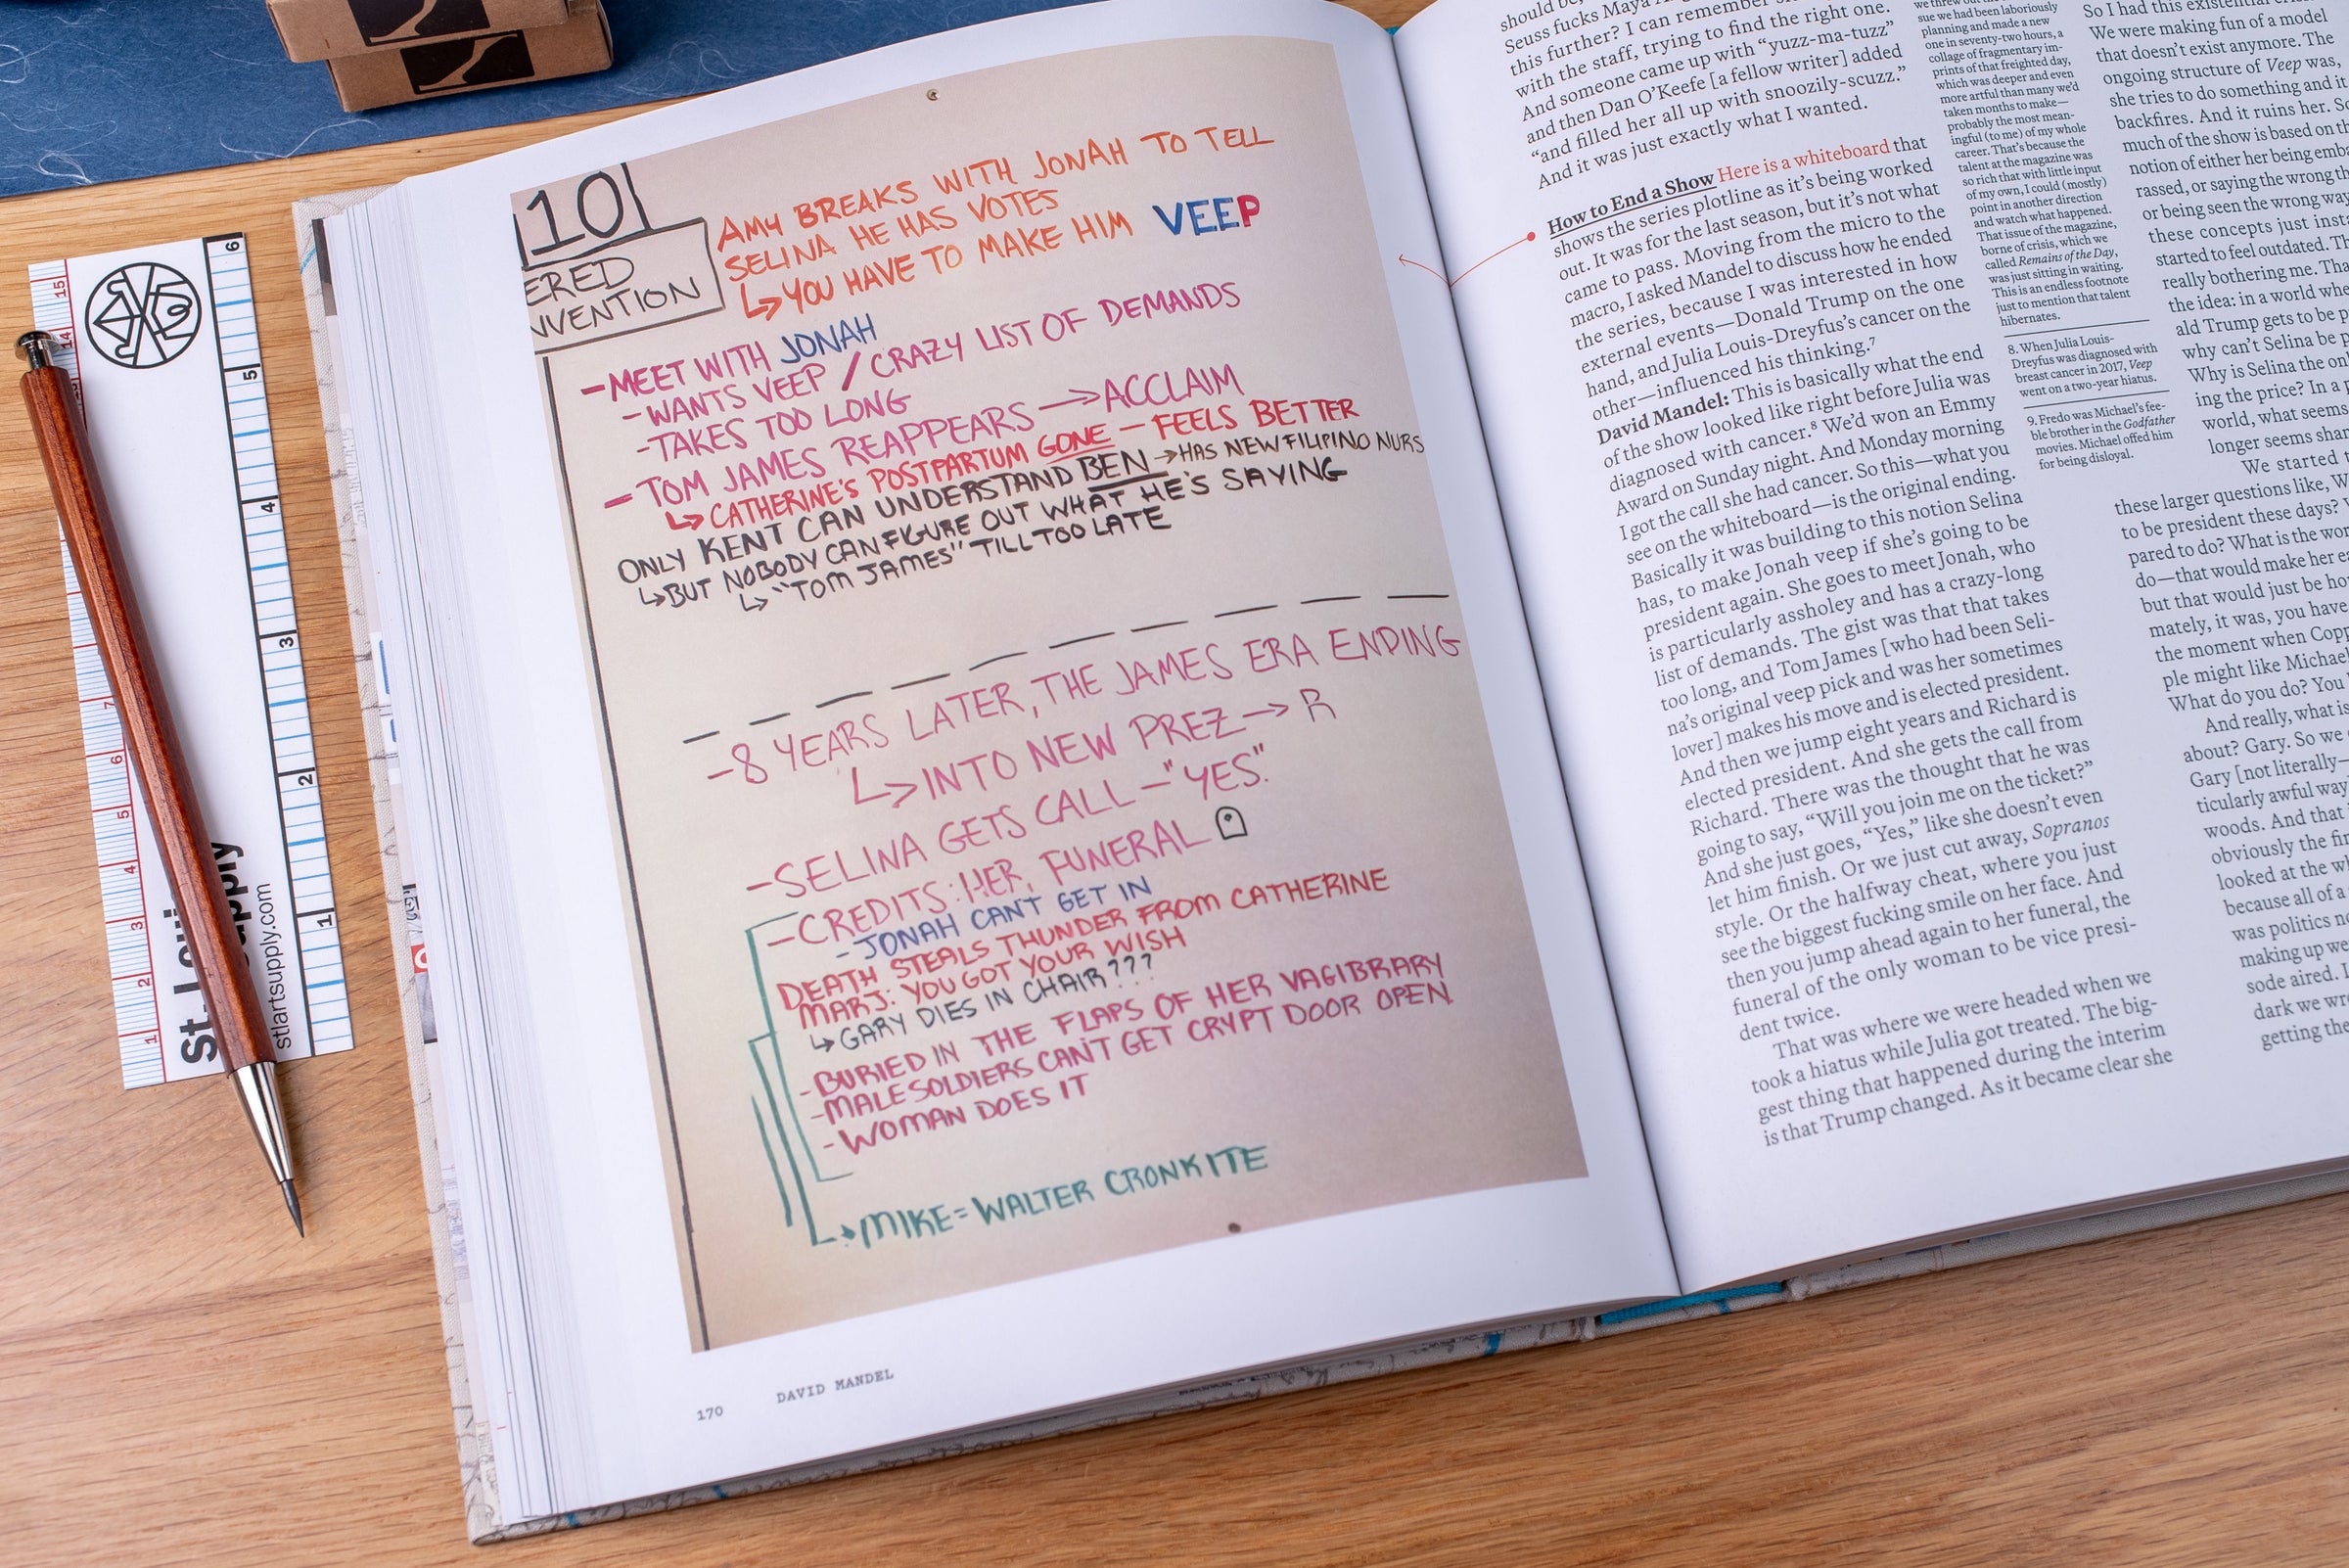 10
ERED
NVENTION
AMY BREAKS WITH JONAH TO TELL
SELINA HE HAS VOTES
↳ YOU HAVE TO MAKE HIM VEEP
-MEET WITH JONAH
-WANTS VEEP / CRAZY LIST OF DEMANDS
-TAKES TOO LONG
-TOM JAMES REAPPEARS → ACCLAIM
↳ CATHERINE'S POSTPARTUM GONE - FEELS BETTER
ONLY KENT CAN UNDERSTAND BEN → HAS NEW FILIPINO NURS
↳ BUT NOBODY CAN FIGURE OUT WHAT HE'S SAYING
↳ "TOM JAMES" TILL TOO LATE
-8 YEARS LATER, THE JAMES ERA ENDING
↳ INTO NEW PREZ → R
-SELINA GETS CALL - "YES".
-CREDITS: HER, FUNERAL
-JONAH CAN'T GET IN
DEATH STEALS THUNDER FROM CATHERINE
MARJ: YOU GOT YOUR WISH
↳ GARY DIES IN CHAIR???
-BURIED IN THE FLAPS OF HER VAGIBRARY
-MALE SOLDIERS CAN'T GET CRYPT DOOR OPEN
-WOMAN DOES IT
→ MIKE = WALTER CRONKITE
170 DAVID MANDEL
should be,
Seuss fucks Maya
this further? I can remember
with the staff, trying to find the right one.
And someone came up with "yuzz-ma-tuzz"
and then Dan O'Keefe [a fellow writer] added
"and filled her all up with snoozily-scuzz."
And it was just exactly what I wanted.
How to End a Show Here is a whiteboard that
shows the series plotline as it's being worked
out. It was for the last season, but it's not what
came to pass. Moving from the micro to the
macro, I asked Mandel to discuss how he ended
the series, because I was interested in how
external events—Donald Trump on the one
hand, and Julia Louis-Dreyfus's cancer on the
other—influenced his thinking.7
David Mandel: This is basically what the end
of the show looked like right before Julia was
diagnosed with cancer.8 We'd won an Emmy
Award on Sunday night. And Monday morning
I got the call she had cancer. So this—what you
see on the whiteboard—is the original ending.
Basically it was building to this notion Selina
has, to make Jonah veep if she's going to be
president again. She goes to meet Jonah, who
is particularly assholey and has a crazy-long
list of demands. The gist was that that takes
too long, and Tom James [who had been Seli-
na's original veep pick and was her sometimes
lover] makes his move and is elected president.
And then we jump eight years and Richard is
elected president. And she gets the call from
Richard. There was the thought that he was
going to say, "Will you join me on the ticket?"
And she just goes, "Yes," like she doesn't even
let him finish. Or we just cut away, Sopranos
style. Or the halfway cheat, where you just
see the biggest fucking smile on her face. And
then you jump ahead again to her funeral, the
funeral of the only woman to be vice presi-
dent twice.
That was where we were headed when we
took a hiatus while Julia got treated. The big-
gest thing that happened during the interim
is that Trump changed. As it became clear she
we threw out the
sue we had been laboriously
planning and made a new
one in seventy-two hours, a
collage of fragmentary im-
prints of that freighted day,
which was deeper and even
more artful than many we'd
taken months to make—
probably the most mean-
ingful (to me) of my whole
career. That's because the
talent at the magazine was
so rich that with little input
of my own, I could (mostly)
point in another direction
and watch what happened.
That issue of the magazine,
borne of crisis, which we
called Remains of the Day,
was just sitting in waiting.
This is an endless footnote
just to mention that talent
hibernates.
8. When Julia Louis-
Dreyfus was diagnosed with
breast cancer in 2017, Veep
went on a two-year hiatus.
9. Fredo was Michael's fee-
ble brother in the Godfather
movies. Michael offed him
for being disloyal.
So I had this existential
We were making fun of a model
that doesn't exist anymore. The
ongoing structure of Veep was,
she tries to do something and it
backfires. And it ruins her. So
much of the show is based on th
notion of either her being emba
rassed, or saying the wrong th
or being seen the wrong way
these concepts just inst
started to feel outdated. Th
really bothering me. Tha
the idea: in a world whe
ald Trump gets to be p
why can't Selina be p
Why is Selina the on
ing the price? In a p
world, what seems
longer seems shan
We started t
these larger questions like, W
to be president these days?
pared to do? What is the wor
do—that would make her ea
but that would just be ho
mately, it was, you have
the moment when Copp
ple might like Michael
What do you do? You
And really, what is
about? Gary. So we
Gary [not literally—
ticularly awful way
woods. And that
obviously the fir
looked at the w
because all of a
was politics no
making up we
sode aired. I
dark we wr
getting the
St. Louis
stlartsupply.com
6
5
4
3
2
1
15
14
7
6
5
4
3
2
1